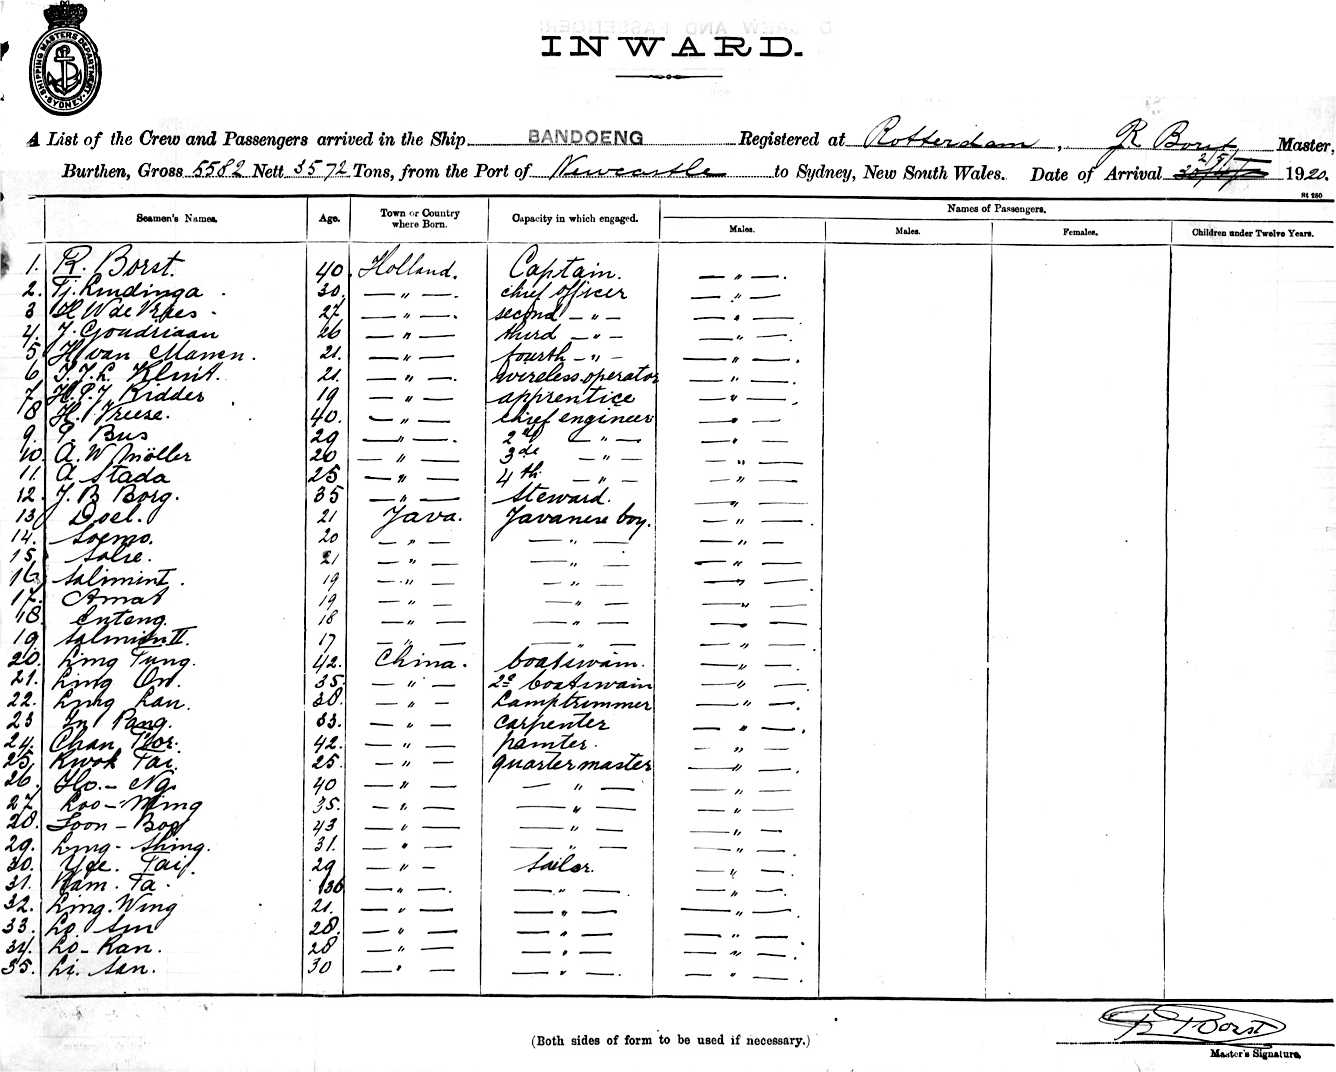 SHIPPING MASTERS DEPARTMENT
SYDNEY
INWARD.
A List of the Crew and Passengers arrived in the Ship BANDOENG Registered at Rotterdam, R Borst Master,
2/5/
Burthen, Gross 5582 Nett 3572 Tons, from the Port of Newcastle to Sydney, New South Wales. Date of Arrival 1920.
St 280
Seamen's Names. Age. Town or Country where Born. Capacity in which engaged. Names of Passengers.
Males. Males. Females. Children under Twelve Years.
1. R. Borst. 40. Holland. Captain. — " —.
2. Tj. 30. — " —. chief officer — " —
3 H W de Vries 27 — " —. second — " — — " —
4. J. Goudriaan 26 — " — third — " — — " —
5. H. van Manen. 21. — " — fourth — " — — " —.
6 J. L. Kluit. 21. — " —. wireless operator — " —.
7. H. P. J Ridder 19 — " — apprentice — " —.
8 H. Vreese. 40. — " — chief engineer — " —
9. Bus 29 — " —. 2nd — " — — " —
10. A. W Möller 20 — " — 3de — " — — " —
11. A Stada 25 — " — 4th — " — — " —
12. J. B Borg. 35 — " — Steward. — " —
13 Doel. 21 Java. Javanese boy. — " —
14. Soemo. 20 — " — — " — — " —
15. Salie. 21 — " — — " — — " —
16 Salimin I. 19 — " — — " — — " —
17. Amat 19 — " — — " — — " —
18. Enteng. 18 — " — — " — — " —
19 Salimin II. 17 — " — — " — — " —
20. Ling Tung. 42. China. boatswain. — " —.
21. Ling On. 35. — " — 2e boatswain — " —
22. Ling Lan. 38. — " — Lamptrimmer — " —.
23 Pang. 33. — " — carpenter — " —.
24. Chan 42. — " — painter. — " —
25. Kwok Tai. 25. — " — quartermaster — " —.
26. Ho. - Ng. 40 — " — — " — — " —.
27. Loo - Ming 35. — " — — " — — " —.
28. 43 — " — — " — — " —
29. Ling - Shing. 31. — " — — " — — " —.
30. Yee. Tai. 29 — " — sailor. — " —
31. Kam. Ta. 36 — " — — " — — " —.
32. Ling. Wing 21. — " — — " — — " —.
33. Lo. Sin 28. — " — — " — — " —.
34. Lo - Kan. 28 — " — — " — — " —.
35. Li. San. 30 — " — — " — — " —.
R Borst
(Both sides of form to be used if necessary.)
Master's Signature.